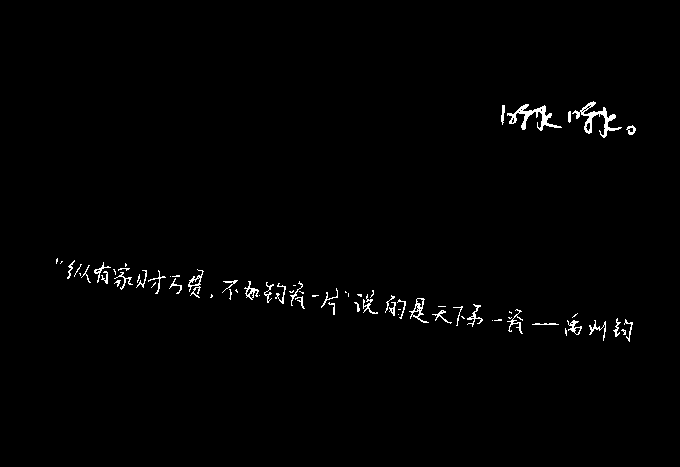 “纵有家财万贯，不如钧瓷一片”说的是天下第一瓷——禹州钧